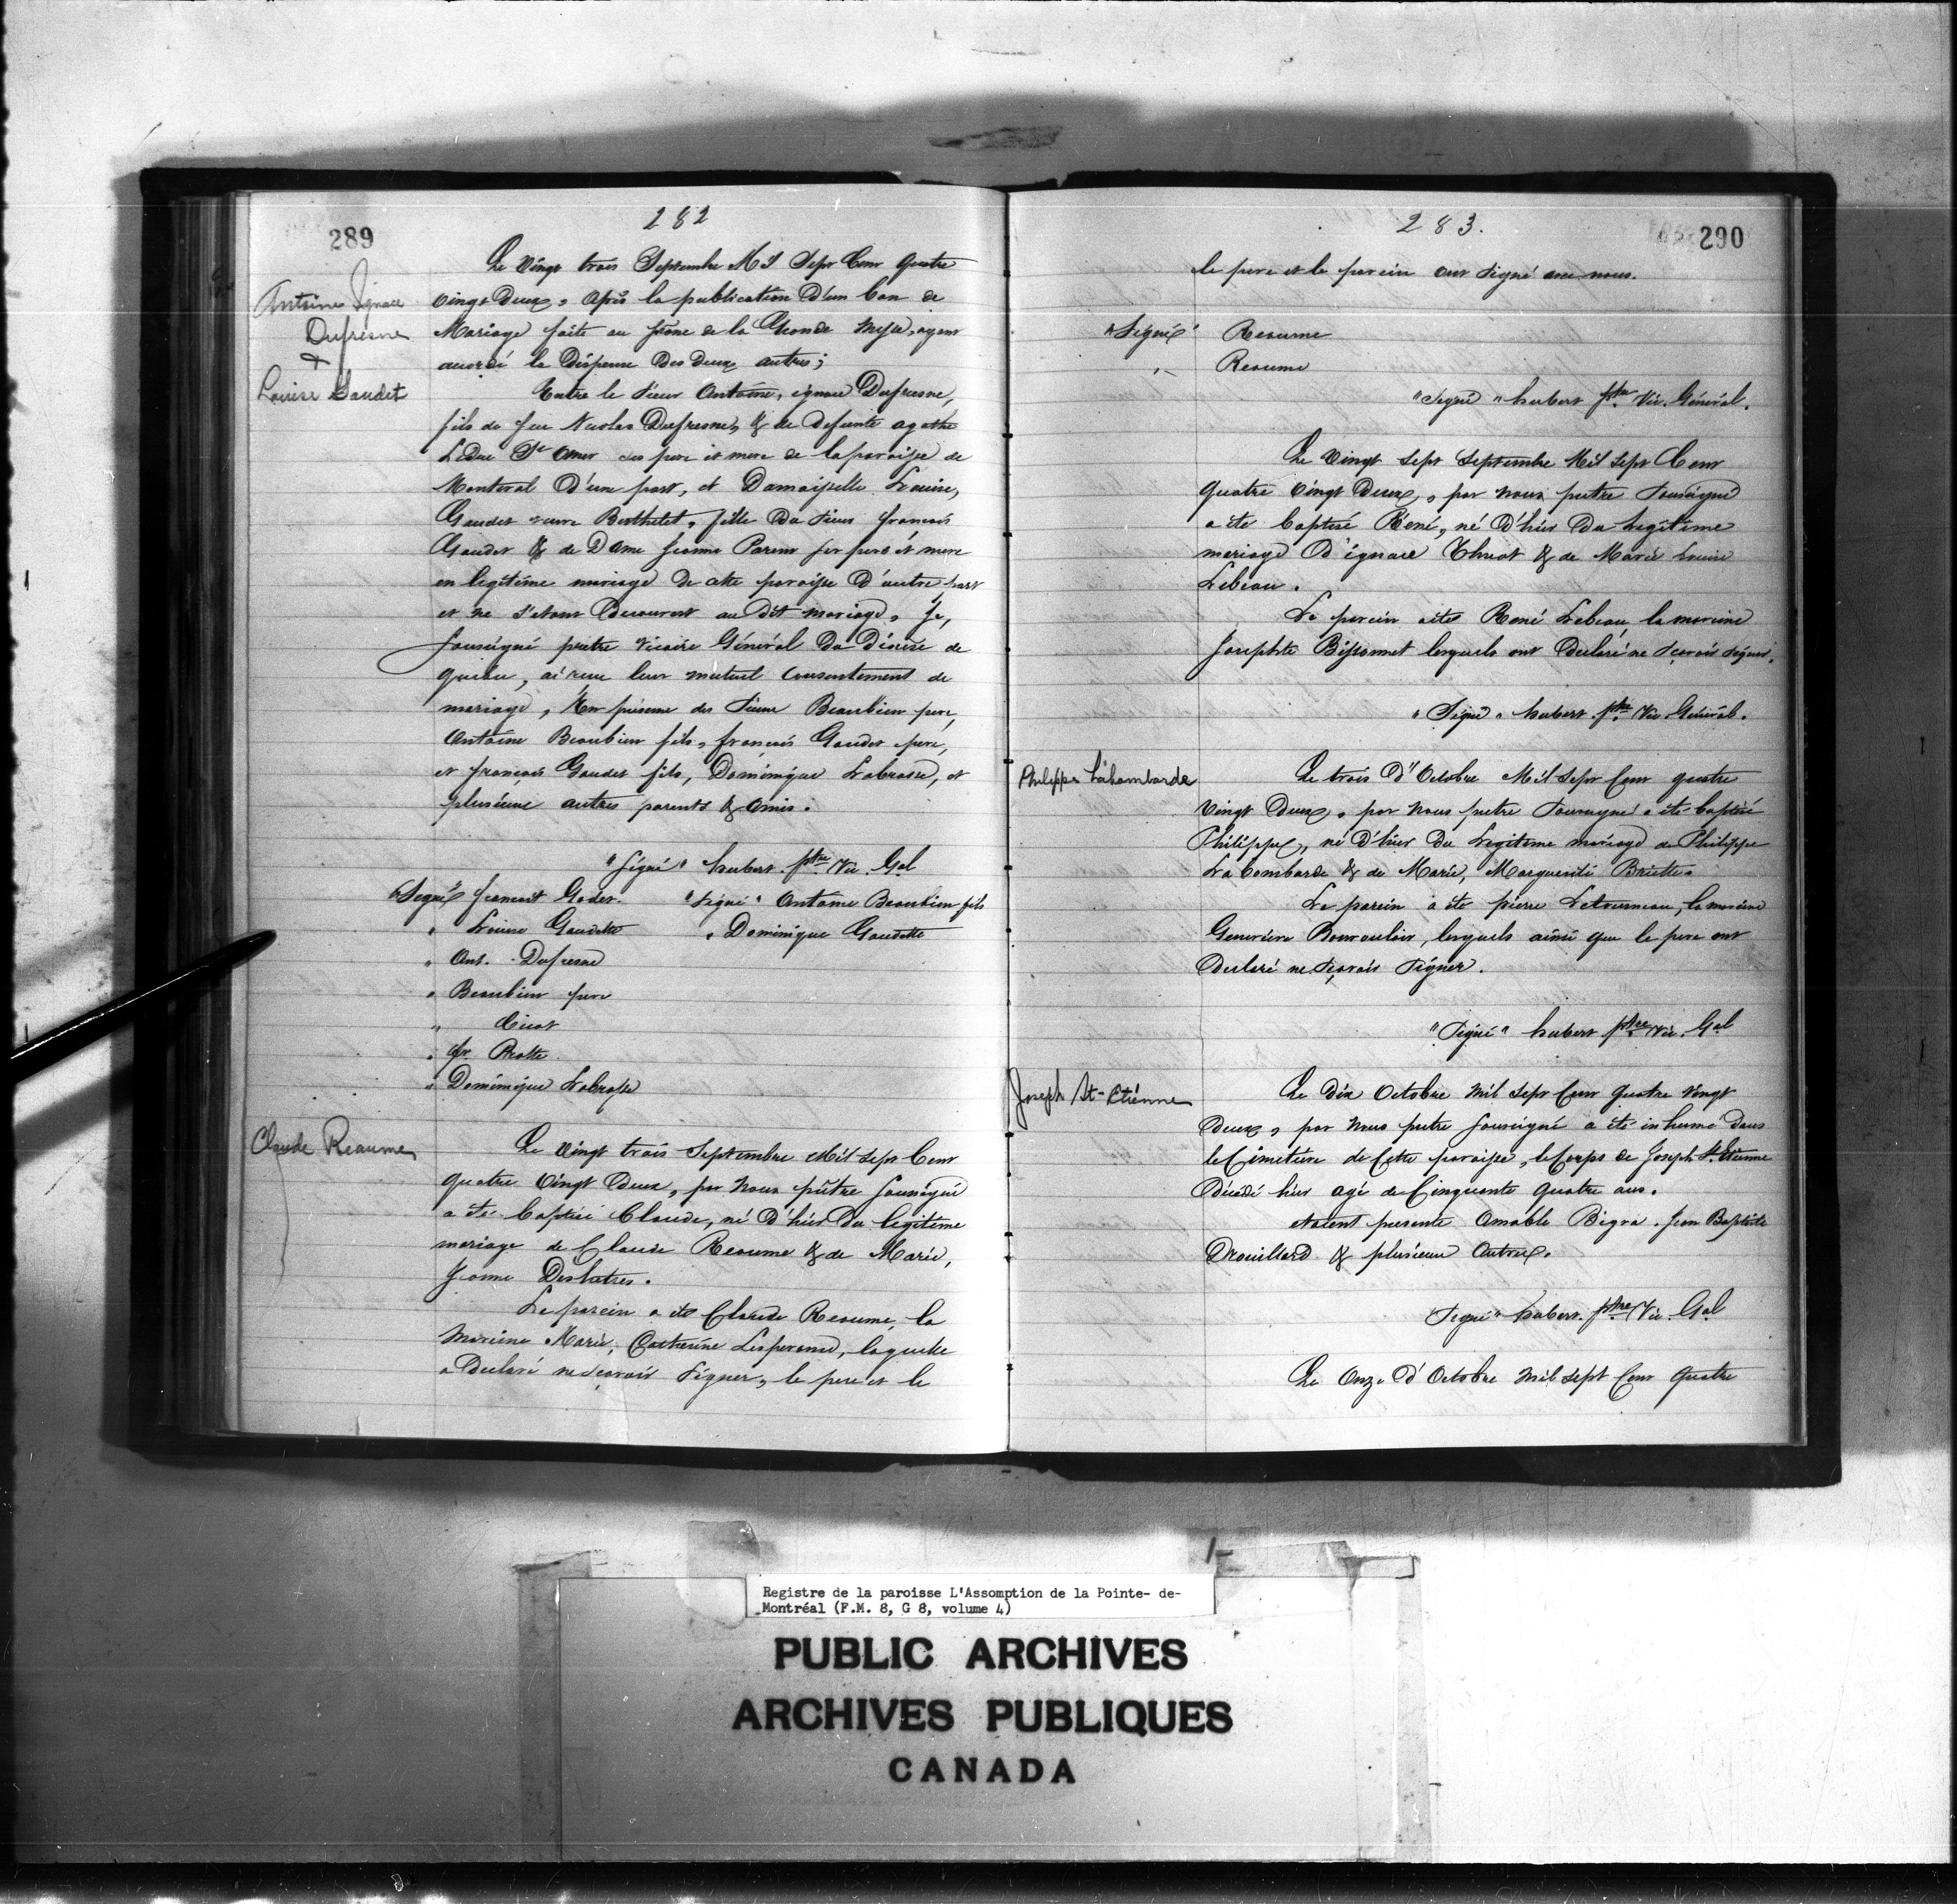 289
282
Antoine Ignace
Dufresne
+
Louise Gaudet
Le Vingt trois Septembre Mil Sept Cent Quatre
vingt Deux, Après la publication D'un ban de
Mariage faite au prône de la Grande Messe, ayant
accordé la Dispense Des Deux autres;
Entre le Sieur Antoine, ignace Dufresne,
fils de feu Nicolas Dufresne, & de Defunte agathe
LeDuc St Omer ses pere et mere de la paroisse de
Montreal D'une part, et Damoiselle Louise,
Gaudet veuve Berthelet, fille Du Sieur francois
Gaudet & de Dame Jeanne Parent ses pere et mere
en legitime mariage De cette paroisse D'autre part
et ne s'etant Decouvert au Dit mariage, Je,
Soussigné prêtre Vicaire Général Du Diocèse de
quebec, ai reçu leur mutuel Consentement de
mariage, En présence des Sieurs Beaubien pere,
Antoine Beaubien fils, francois Gaudet pere,
et francois Gaudet fils, Dominique Labrosse, et
plusieurs autres parents & amis.
"Signé" hubert ptre Vic. Gal
"Signé" francoit Godet. "Signé" Antoine Beaubien fils
" Louise Gaudette " Dominique Gaudette
" Ant. Dufresne
" Beaubien pere
" Cicot
" fr. Pratte
" Dominique Labrosse
Claude Reaume
Le Vingt trois Septembre Mil Sept Cent
Quatre Vingt Deux, par Nous prêtre Soussigné
a été baptisé Claude, né D'hier Du legitime
mariage de Claude Reaume & de Marie,
Jeanne Deshetres.
Le parein a été Claude Reaume, la
Mareine Marie, Catherine Lesperance, laquelle
a Declaré ne sçavoir signer, le pere et le
283.
290
le pere et le parein ont signé avec nous.
"Signé" Reaume
" Reaume
"Signé" hubert ptre Vic. Général.
Le Vingt Sept Septembre Mil Sept Cent
Quatre Vingt Deux, par Nous prêtre Soussigné
a été baptisé René, né D'hier Du legitime
mariage D'ignace Thuot & de Marie Louise
Lebeau.
Le parein a été René Lebeau, la mareine
Josephte Bissonnet lesquels ont Declaré ne sçavoir signer.
"Signé" hubert ptre Vic. Général.
Philippe Labombarde
Le trois D'Octobre Mil Sept Cent quatre
Vingt Deux, par Nous prêtre Soussigné a été baptisé
Philippe, né D'hier Du Legitime mariage de Philippe
La bombarde & de Marie, Marguerite Briette.
Le parein a été pierre Letourneau, la mareine
Genevieve Bourouloir, lesquels ainsi que le pere ont
Declaré ne sçavoir Signer.
"Signé" hubert ptre Vic. Gal
Joseph St-Etienne
Le Dix Octobre Mil Sept Cent Quatre Vingt
Deux, par Nous prêtre Soussigné a été inhumé Dans
le Cimetière de Cette paroisse, le Corps de Joseph St. Etienne
Décédé hier agé de Cinquante Quatre ans.
etaient presents Amable Bigra, Jean Baptiste
Drouillard & plusieurs Autres.
"Signé" hubert. ptre Vic. Gal
Le Onze D'Octobre Mil Sept Cent Quatre
Registre de la paroisse L'Assomption de la Pointe- de-
Montréal (F.M. 8, G 8, volume 4)
PUBLIC ARCHIVES
ARCHIVES PUBLIQUES
CANADA